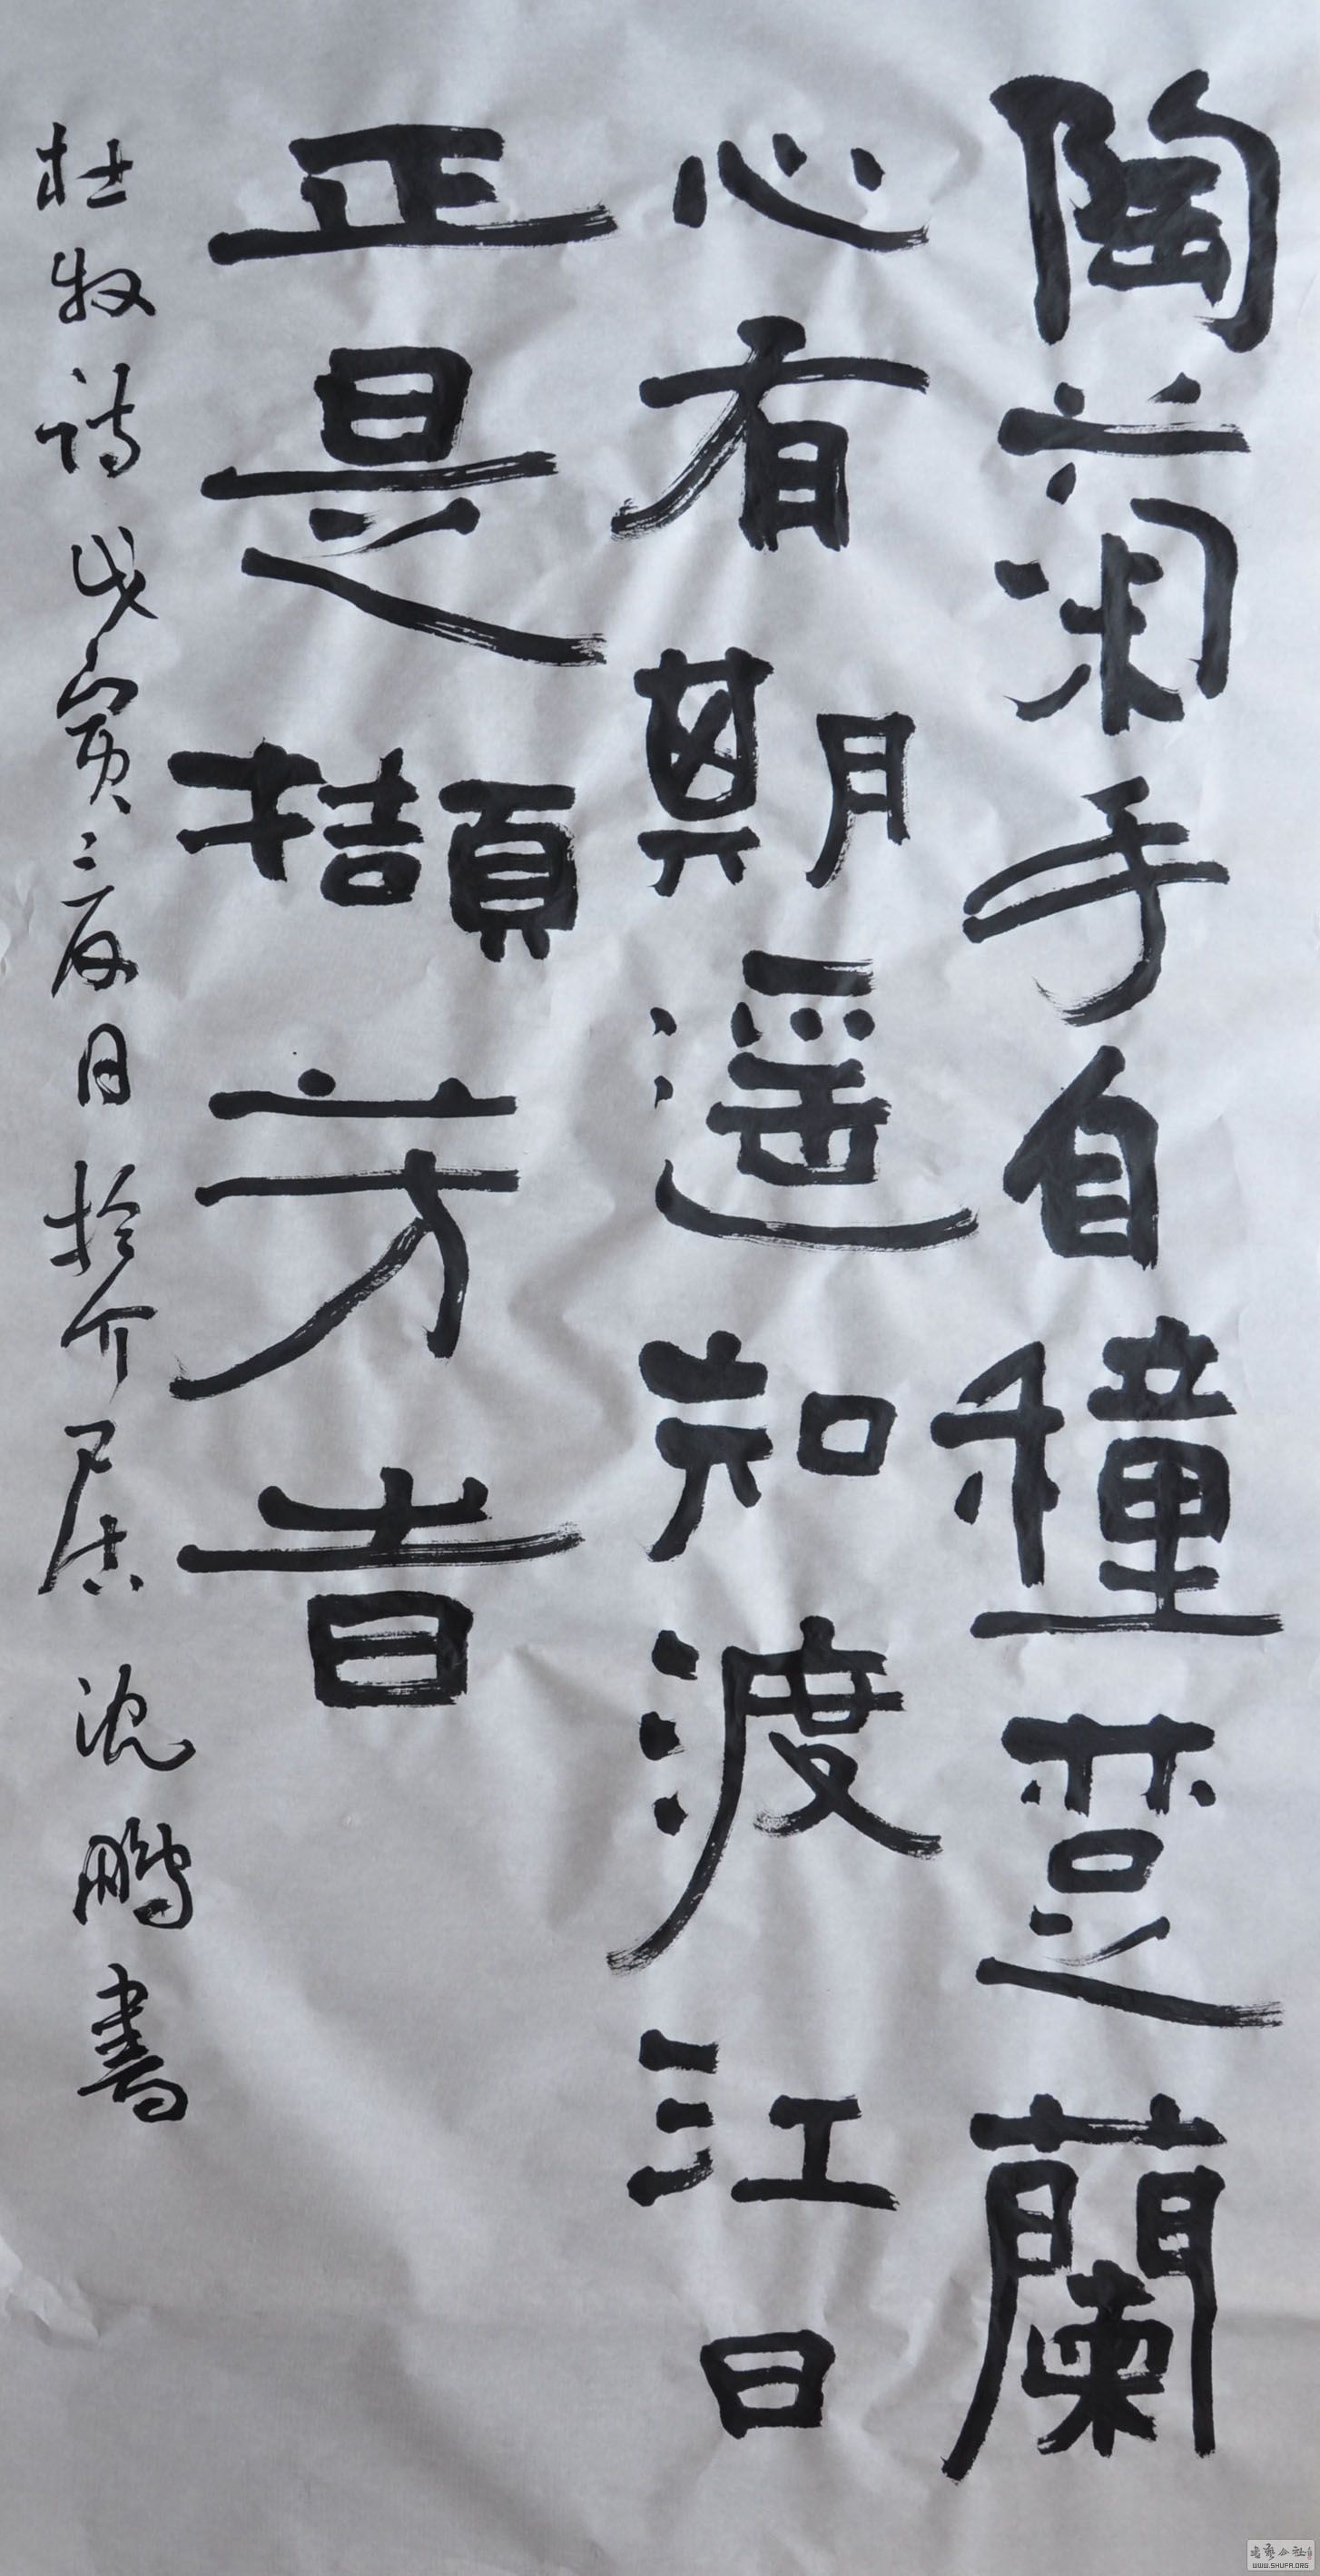 陶菊手自種楚蘭
心有期遥知渡江日
正是擷芳時
杜牧詩戊寅三夜日於介居沈鵬書
WWW.SHUFA.ORG